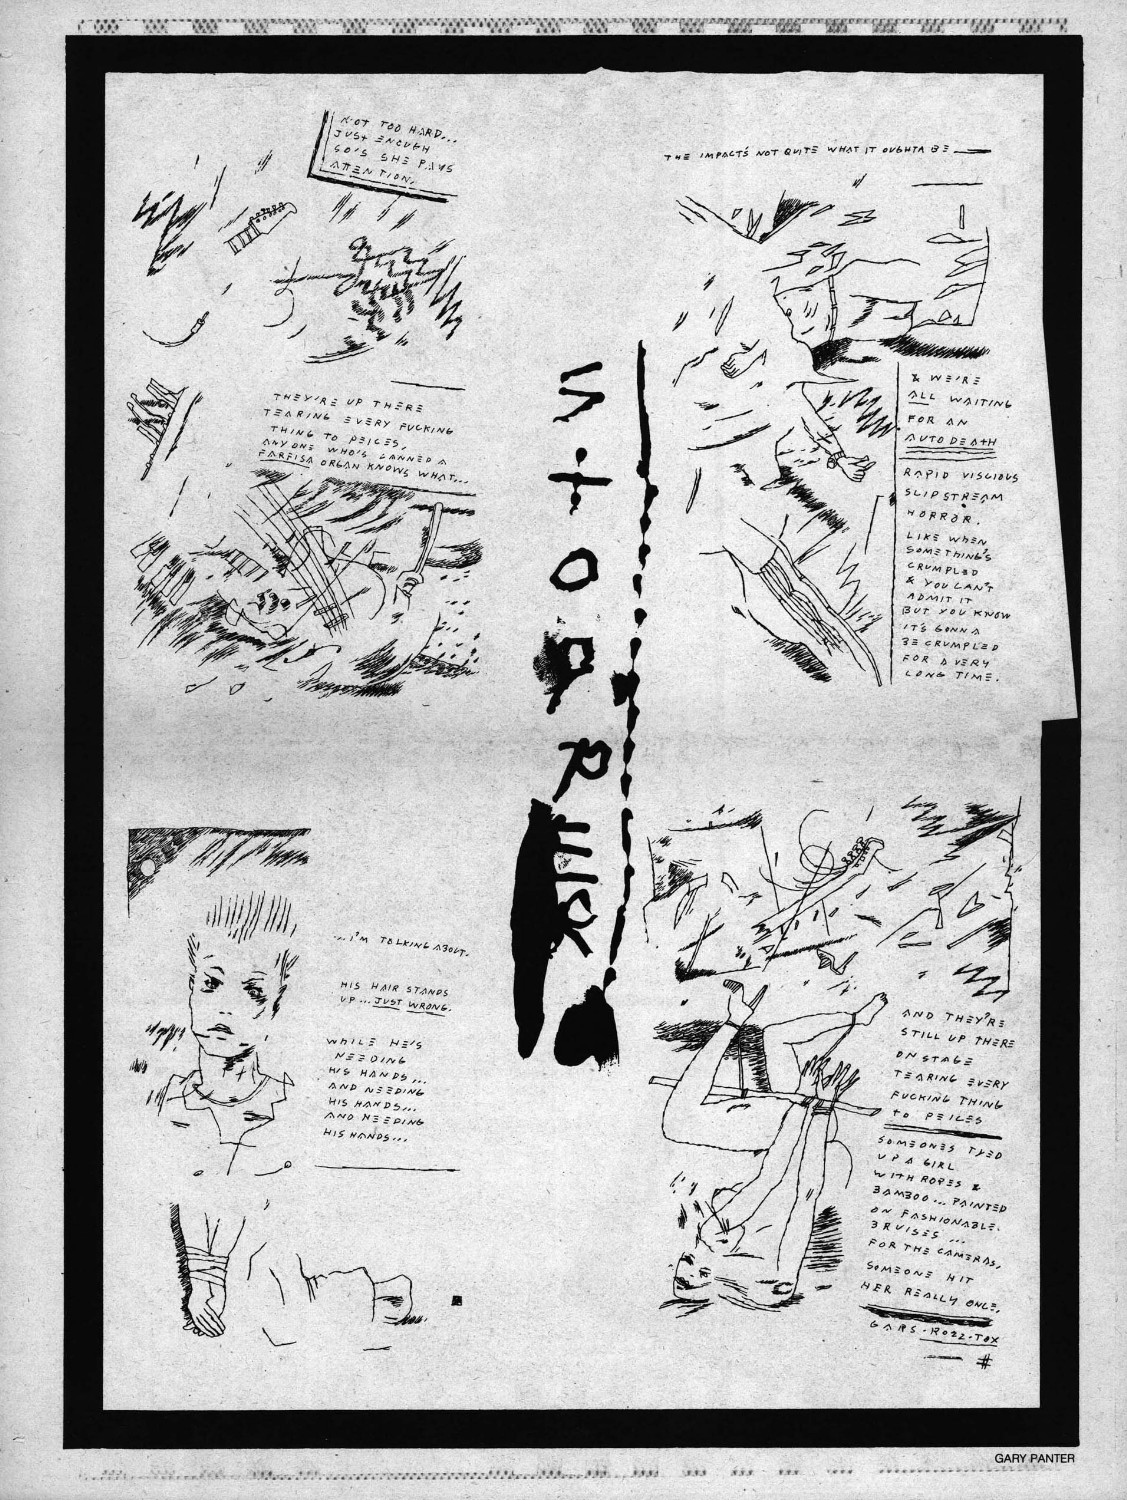 NOT TOO HARD...
JUST ENOUGH
SO'S SHE PAYS
ATTENTION.
THEY'RE UP THERE
TEARING EVERY FUCKING
THING TO PEICES,
ANYONE WHO'S CANNED A
FARFISA ORGAN KNOWS WHAT...
...I'M TALKING ABOUT.
HIS HAIR STANDS
UP... JUST WRONG.
WHILE HE'S
NEEDING
HIS HANDS...
AND NEEDING
HIS HANDS...
AND NEEDING
HIS HANDS...
THE IMPACT'S NOT QUITE WHAT IT OUGHTA BE
& WE'RE
ALL WAITING
FOR AN
AUTO DEATH
RAPID VISCIOUS
SLIPSTREAM
HORROR.
LIKE WHEN
SOMETHING'S
CRUMPLED
& YOU CAN'T
ADMIT IT
BUT YOU KNOW
IT'S GONNA
BE CRUMPLED
FOR A VERY
LONG TIME.
AND THEY'RE
STILL UP THERE
ON STAGE
TEARING EVERY
FUCKING THING
TO PEICES
SOMEONES TYED
UP A GIRL
WITH ROPES &
BAMBOO... PAINTED
ON FASHIONABLE
BRUISES ...
FOR THE CAMERAS,
SOMEONE HIT
HER REALLY ONCE.
GARS-ROZZ-TOX
#
GARY PANTER